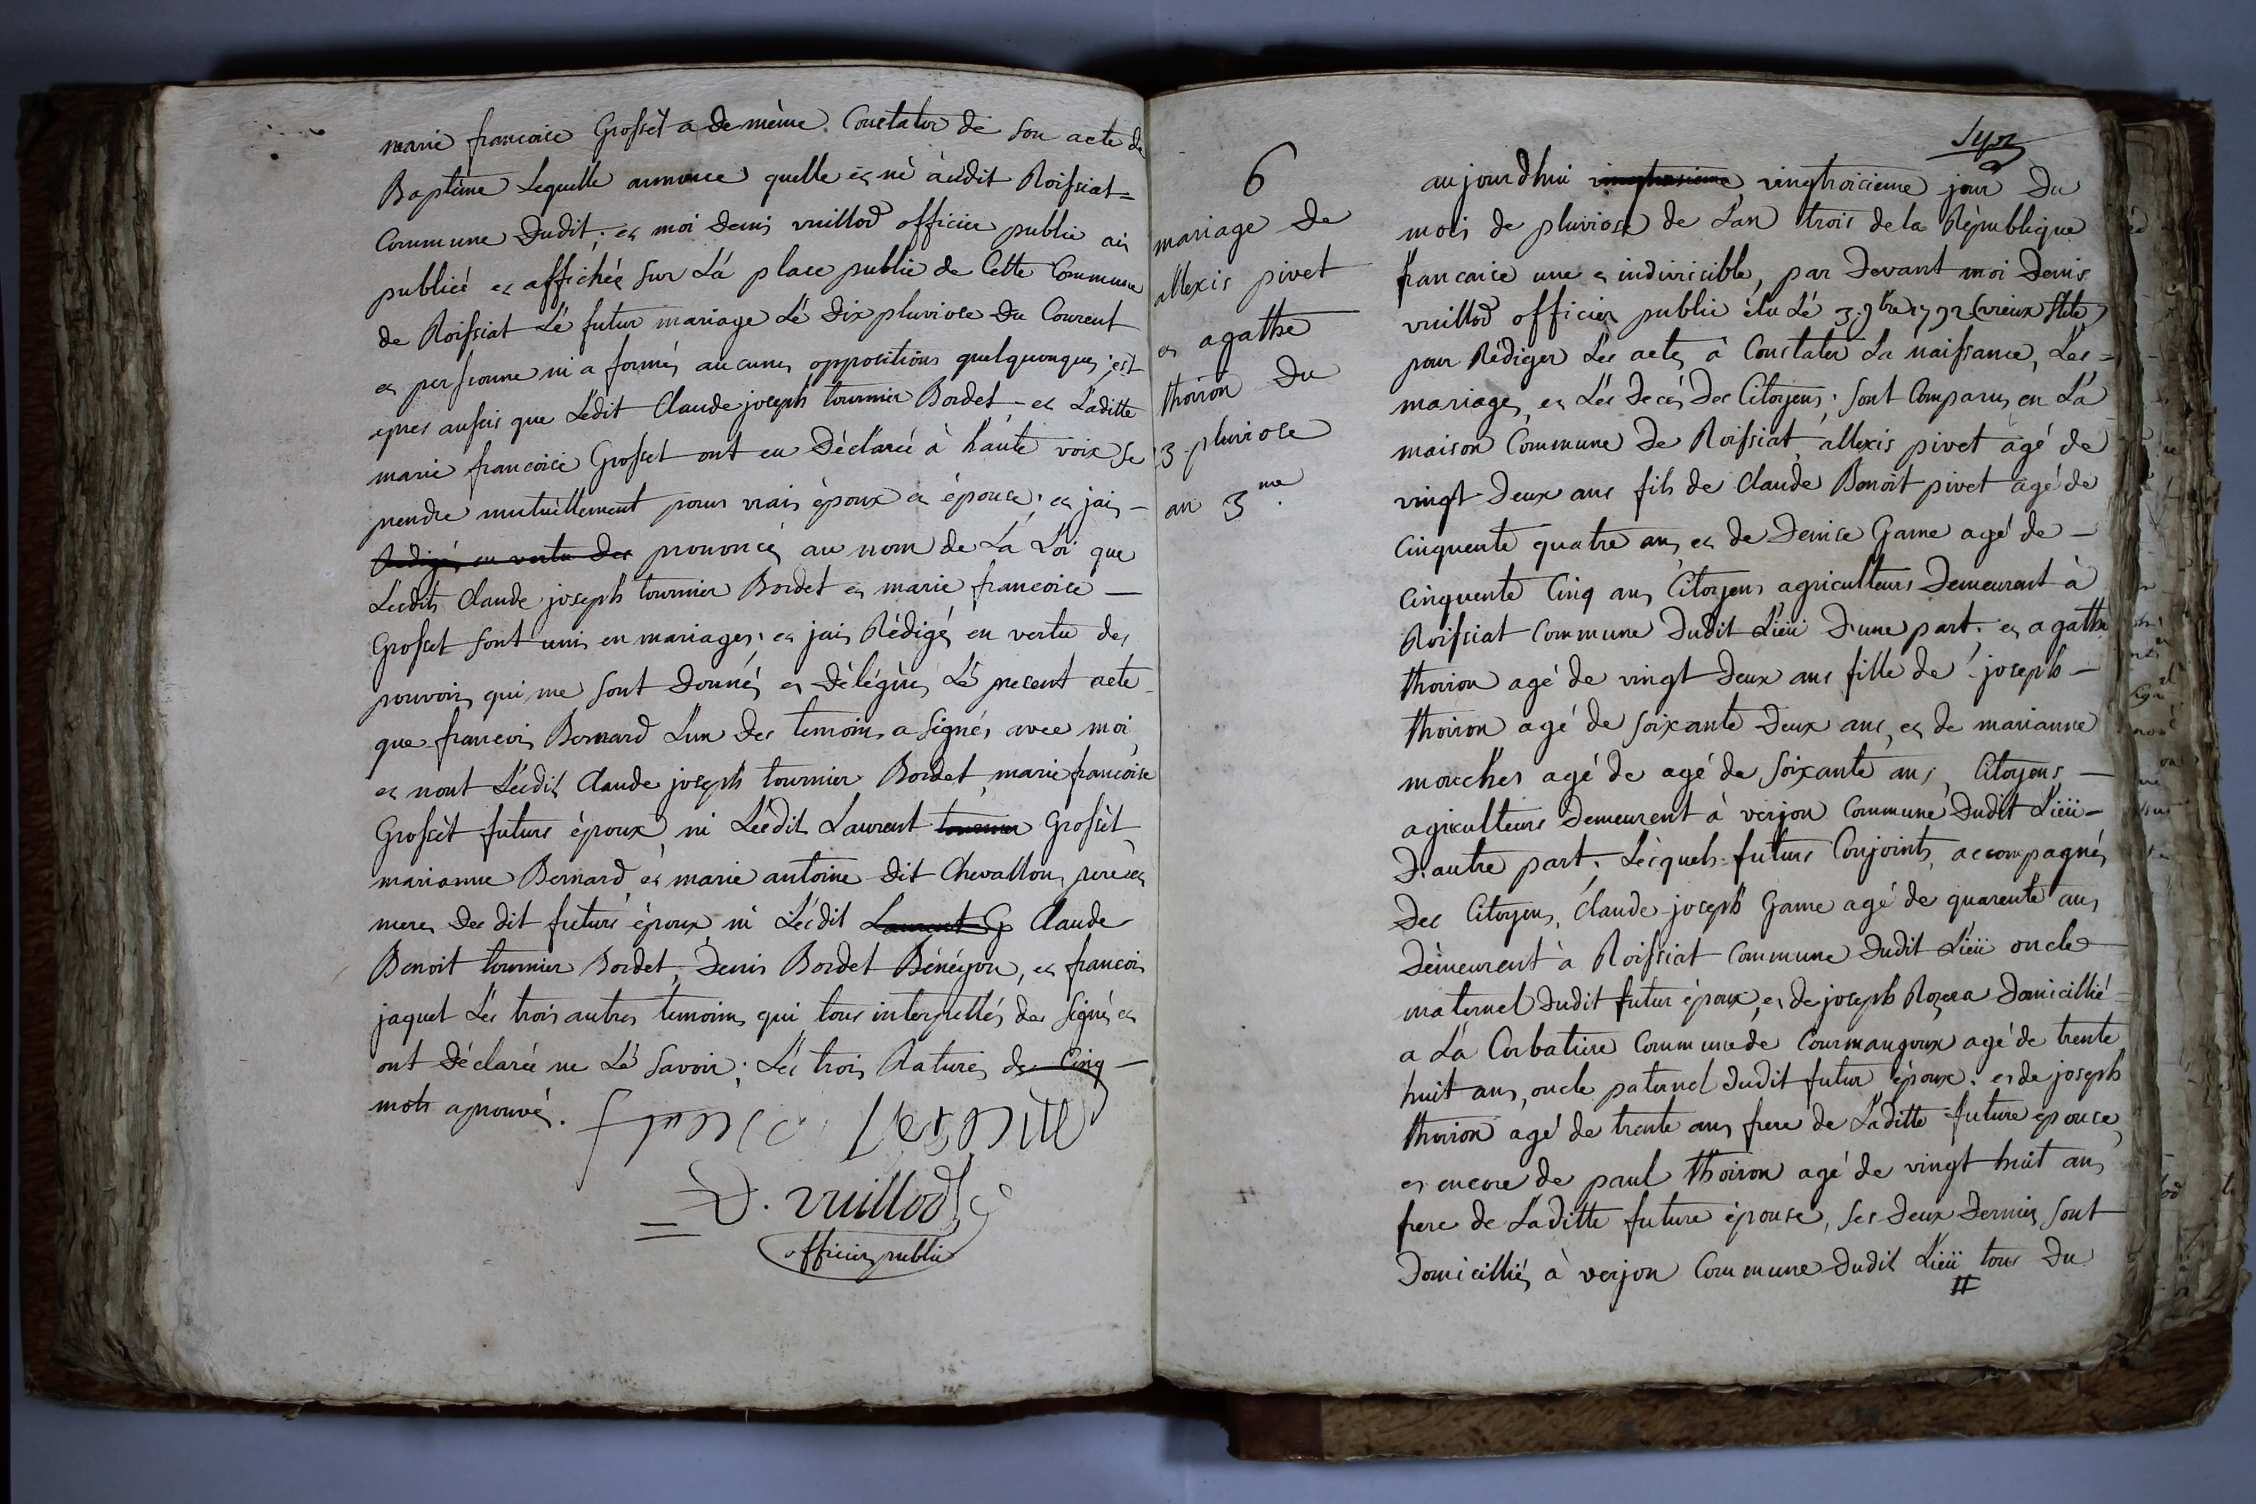 marie francoise Grosset a de même Constater de son acte de
Baptême Lequelle annonce quelle es né àudit Roissiat =
Commune dudit ; es moi denis vuillod officier public ais
publiés es affichés sur Lá place public de Cette Commune
de Roissiat Lé futur mariage Lé dix pluviose du Courent
es personne ni a formés aucunes oppositions quelquonques ; est
apres aussis que Ledit Claude joseph tournier Bordet - es Laditte
marie francoise Grosset ont eu Déclarée à haute voix se
prendre mutuellement pour vrais époux es épouse ; es jais -
Rédigés en vertu des prononcés au nom de Lá Loi que
Lesdits Claude joseph tournier Bordet es marie francoise -
Grosset sont unis en mariages ; es jais Rédigés en vertu des
pouvoirs qui me sont donnés es délégués Lé present acte
que francois Bernard L'un des temoins a signés avec moi
es nont Lesdits Claude joseph tournier Bordet, marie francoise
Grosset futurs époux, ni Lesdits Laurent tournier Grosset
marianne Bernard es marie antoine dit Chevallon, pere es
mere des dit futurs époux ni Lesdit Laurent G Claude
Benoit tournier Bordet, Denis Bordet Bénéyon, es francois
jaquet Les trois autres temoins qui tous interpellés des signés es
ont déclarée ne Lé savoir ; Les trois Ratures de Cinq -
mots aprouvés.
D. vuillod
officier public
6
mariage de
allexis pivet
es agathe
thoiron du
3 pluviose
an 3.me
aujourdhui vingtroicieme jour du
mois de pluviose de L'an trois de la République
francaice une es indivicible, par devant moi Denis
vuillod officier public élu Lé 3. 9bre 1792 (vieux stile)
pour Rédiger Les actes à Constater La naissance, Les =
mariages es Les decés des Citoyens ; sont Comparus en Lá
maison Commune de Roissiat, allexis pivet agé de
vingt-deux ans fils de Claude Benoit pivet agé de
Cinquente quatre ans es de Denise Game agé de -
Cinquente Cinq ans, Citoyens agriculteurs Demeurent à
Roissiat Commune dudit Lieü d'une part ; es agathe
thoiron agé de vingt deux ans fille de joseph -
thoiron agé de soixante deux ans, es de marianne
moucher agé de agé de soixante ans, Citoyens -
agriculteurs demeurent à verjon Commune dudit Lieü -
D'autre part ; Lesquels futurs Conjoints accompagnés
des Citoyens, Claude joseph Game agé de quarente ans
Demeurent à Roissiat Commune dudit Lieü oncle
maternel dudit futur époux, es de joseph Domicillié
a Lá Corbatiere Commune de Courmangoux agé de trente
huit ans, oncle paternel dudit futur époux ; es de joseph
thoiron agé de trente ans frere de Laditte future épouce,
es encore de paul thoiron agé de vingt huit ans
frere de Laditte future épouse, ses deux derniers sont
Domicilliés à verjon Commune dudit Lieü tous du